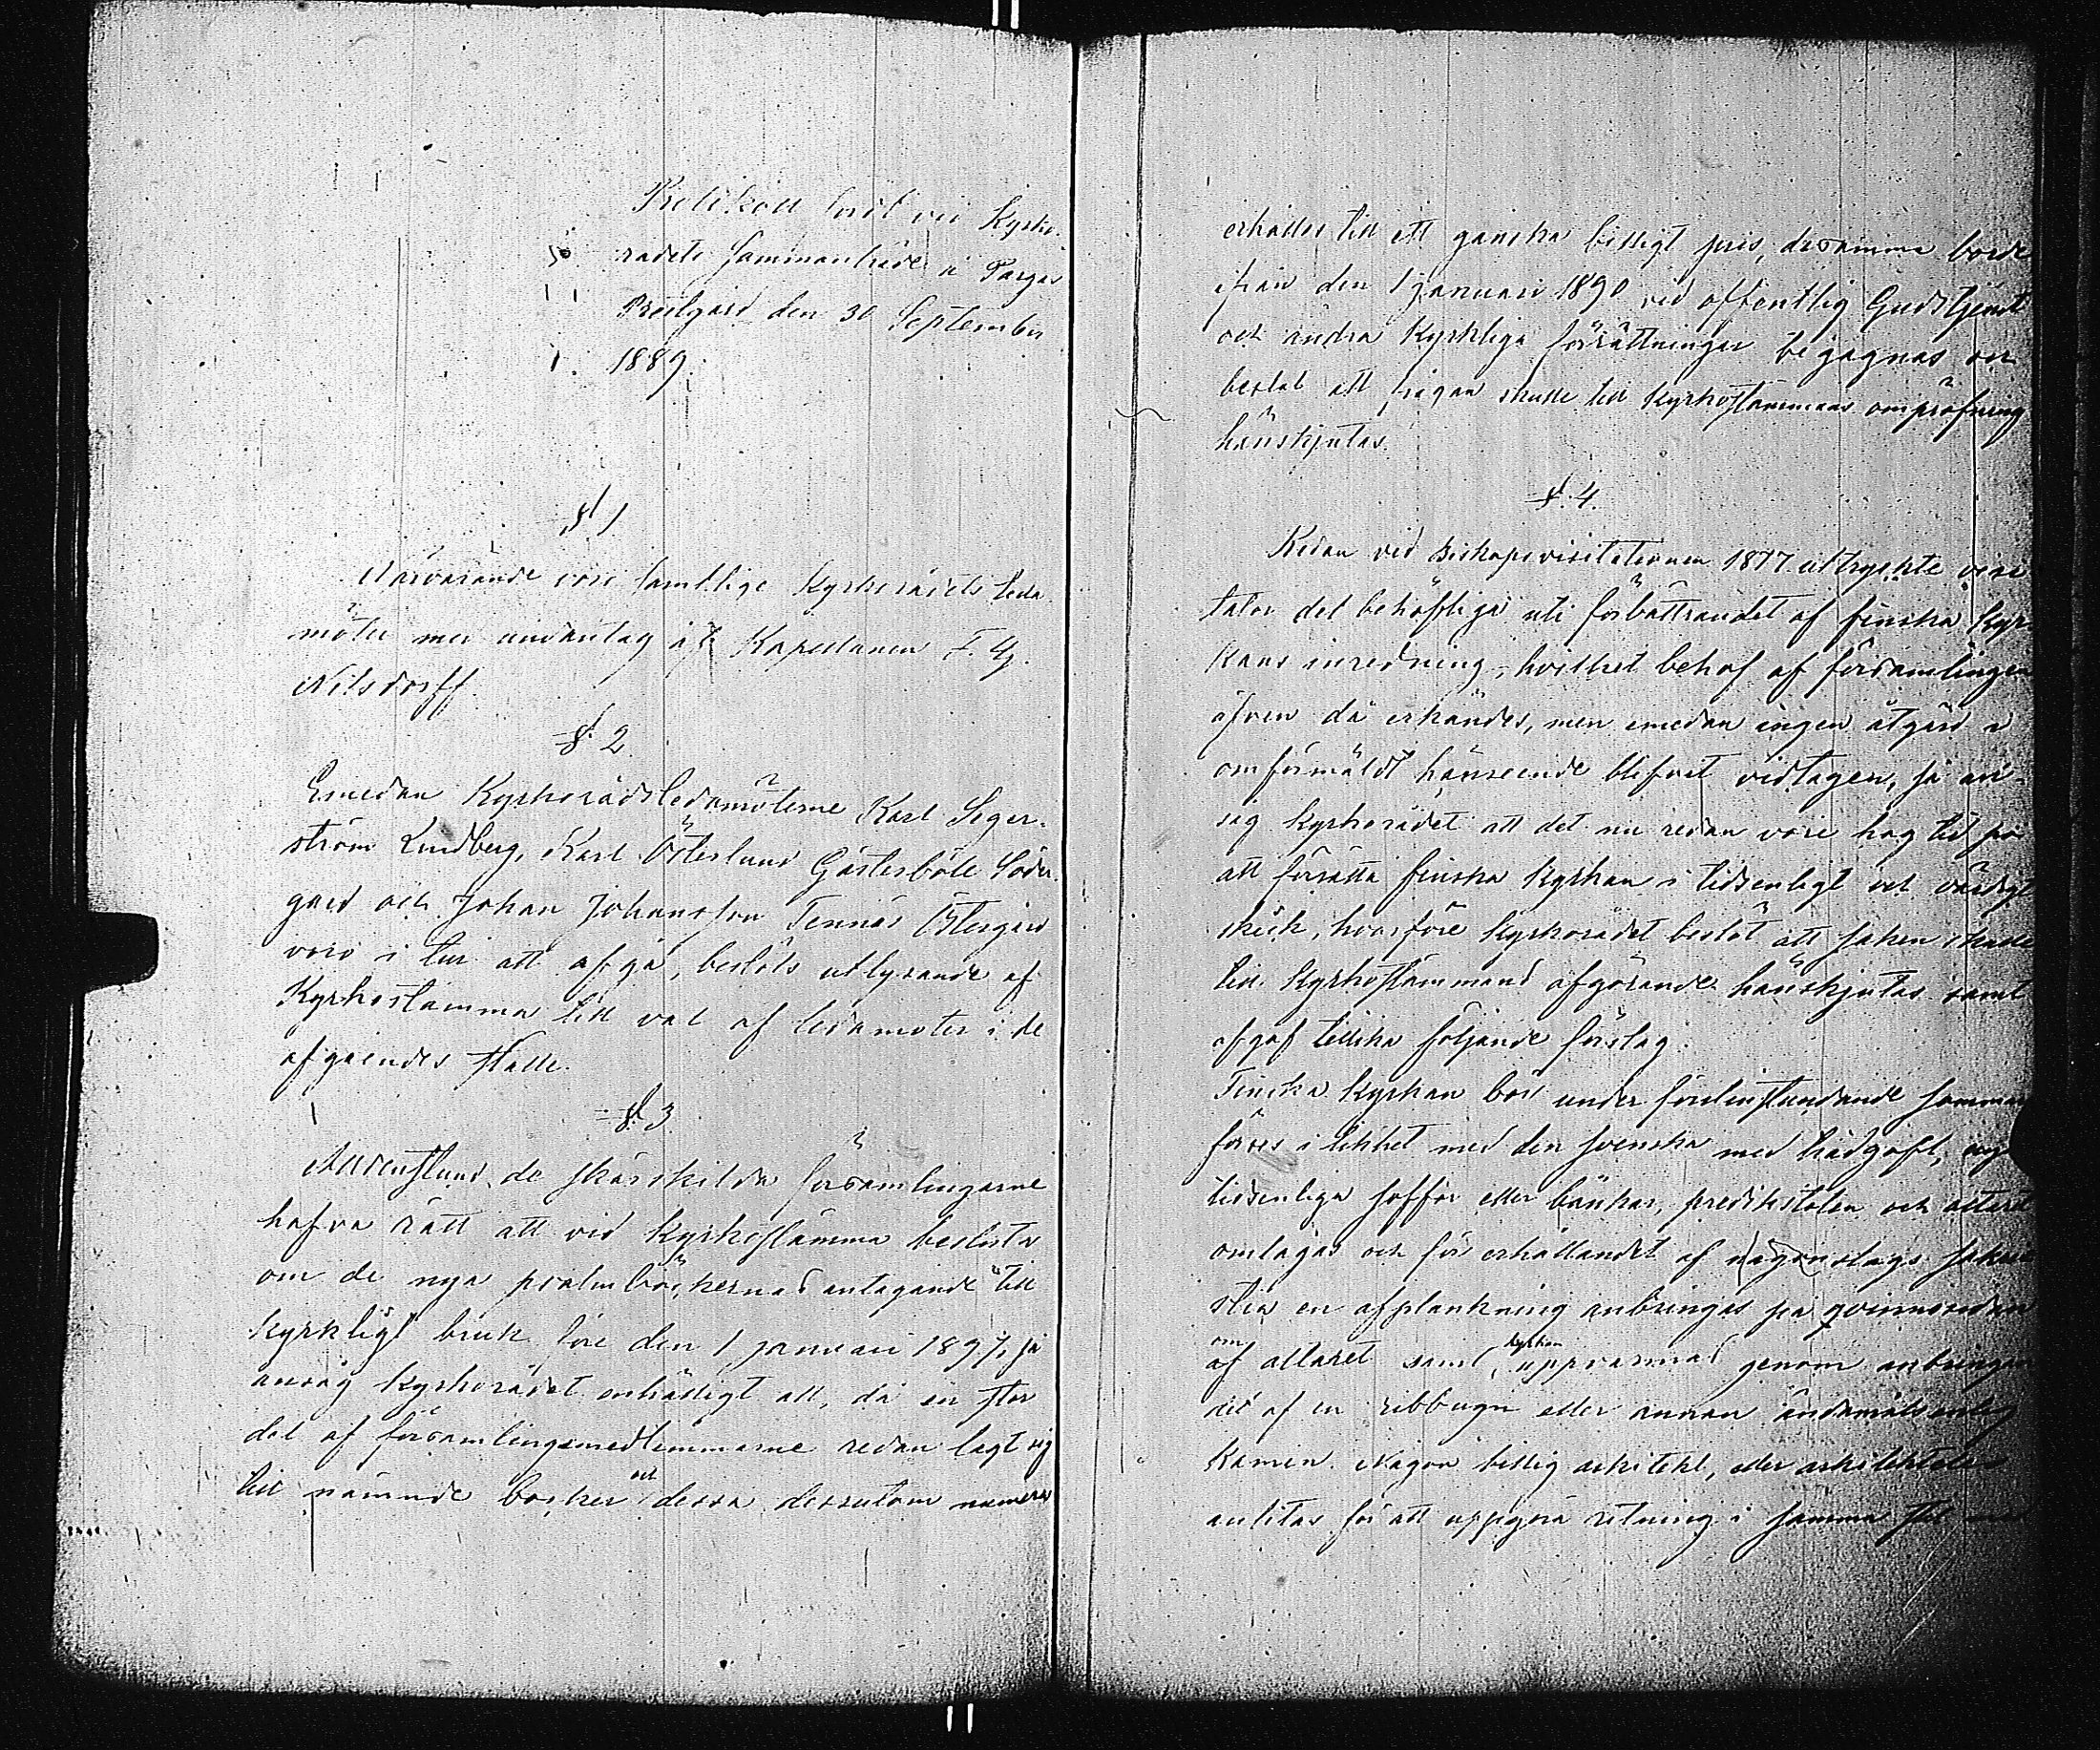 Protokoll fördt vid Kyrko-
rådets sammanträde i Pargas
Prestgård den 30 September
1889.
§ 1
Närvarande voro samtlige Kyrkorådets leda-
möter med undantag af Kapellanen F. G.
Nilsdorff.
§ 2
Emedan Kyrkorådsledamöterne Karl Seger-
ström Lindberg, Karl Österlund Gästerböle Söder-
gård och Johan Johansson Tennäs Östergård
voro i tur att afgå, beslöts utlysande af
Kyrkostämma till val af ledamöter i de
afgåendes ställe.
§ 3
Alldenstund de särskilda församlingarne
hafva rätt att vid Kyrkostämma besluta
om de nya psalmböckernas antagande till
Kyrkligt bruk före den 1 januari 1897, så
ansåg Kyrkorådet enhälligt att, då en stor
del af församlingsmedlemmarne redan lagt sig
till nämnde böcker och dessa dessutom numera
erhålles till ett ganska billigt pris, desamma borde
ifrån den 1 januari 1890 vid offentlig Gudstjenst
och andra Kyrkliga förrättningar begagnas och
beslöt att frågan skulle till Kyrkostämmans ompröfning
hänskjutas.
§ 4.
Redan vid Biskopsvisitationen 1877 uttryckte visi-
tator det behöfliga uti förbättrandet af finska Kyr-
kans inredning, hvilket behof af församlingen
äfven då erkändes, men emedan ingen åtgärd i
omförmäldt hänseende blifvit vidtagen, så an-
såg Kyrkorådet att det nu redan vore hög tid på
att försätta finska Kyrkan i tidsenligt och värdigt
skick, hvarföre Kyrkorådet beslöt att saken skulle
till Kyrkostämmans afgörande hänskjutas samt
afgaf tillika följande förslag:
Finska Kyrkan bör under förslinstundande sommar
förses i likhet med den svenska med trädgolf, nya
tidsenliga soffor eller bänkar, predikstolen och altaret
omlagas och för erhållandet af någonslags sakri-
stia en afplankning anbringas på qvinnosidan
om
af altaret samt kyrkan uppvärmas genom anbringan-
det af en ribbugn eller annan ändamålsenlig
Kamin. Någon billig arkitekt, eller arkitektelev
anlitas för att uppgöra ritning i samma stil med